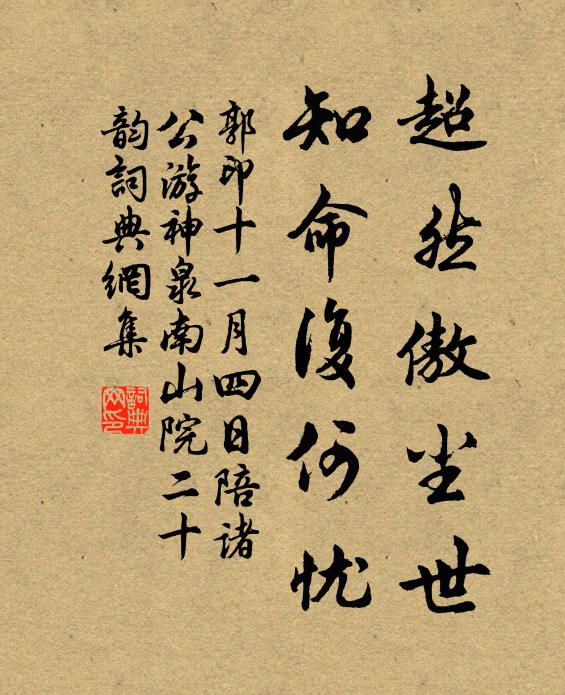 超然傲尘世
知命復何忧
郭印十一月四日陪诸
公游神泉南山院二十
韵詞典網集
詞典
网印